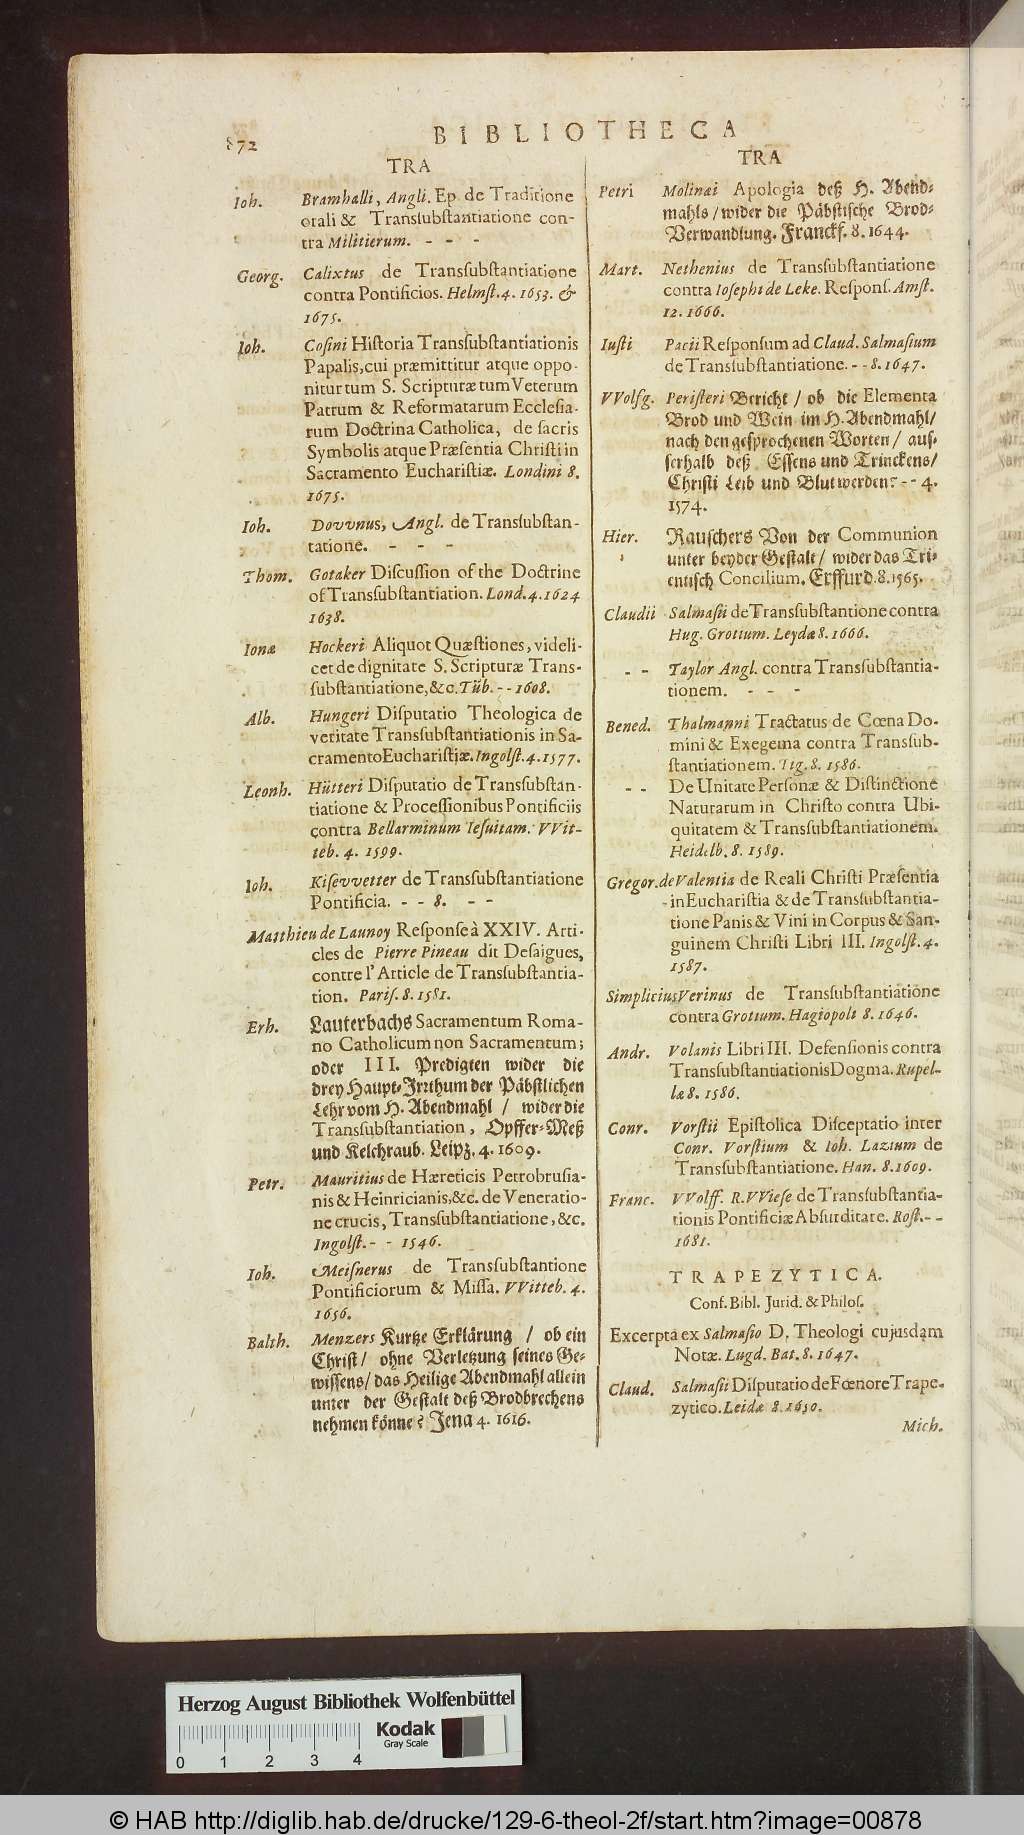 872
BIBLIOTHECA
TRA
Ioh. Bramhalli, Angli. Ep. de Traditione
orali & Transſubſtantiatione con-
tra Militierum. - - -
Georg. Calixtus de Transſubſtantiatione
contra Pontificios. Helmſt. 4. 1653. &
1675.
Ioh. Coſini Hiſtoria Transſubſtantiationis
Papalis, cui præmittitur atque oppo-
nitur tum S. Scripturæ tum Veterum
Patrum & Reformatarum Eccleſia-
rum Doctrina Catholica, de ſacris
Symbolis atque Præſentia Chriſti in
Sacramento Euchariſtiæ. Londini 8.
1675.
Ioh. Dovvnus, Angl. de Transſubſtan-
tatione. - - -
Thom. Gotaker Diſcuſſion of the Doctrine
of Transſubſtantiation. Lond. 4. 1624
1638.
Ionæ Hockeri Aliquot Quæſtiones, videli-
cet de dignitate S. Scripturæ Trans-
ſubſtantiatione, &c. Tüb. - - 1608.
Alb. Hungeri Diſputatio Theologica de
veritate Transſubſtantiationis in Sa-
cramento Euchariſtiæ. Ingolſt. 4. 1577.
Leonh. Hütteri Diſputatio de Transſubſtan-
tiatione & Proceſſionibus Pontificiis
contra Bellarminum Ieſuitam. VVit-
teb. 4. 1599.
Ioh. Kiſevvetter de Transſubſtantiatione
Pontificia. - - 8. - -
Matthieu de Launoy Reſponſe à XXIV. Arti-
cles de Pierre Pineau dit Deſaigues,
contre l'Article de Transſubſtantia-
tion. Pariſ. 8. 1581.
Erh. Lauterbachs Sacramentum Roma-
no Catholicum non Sacramentum;
oder III. Predigten wider die
drey Haupt-Irꝛthum der Päbſtlichen
Lehr vom H. Abendmahl / wider die
Transſubſtantiation, Opffer-Meß
und Kelchraub. Leipz. 4. 1609.
Petr. Mauritius de Hæreticis Petrobruſia-
nis & Heinricianis, &c. de Veneratio-
ne crucis, Transſubſtantiatione, &c.
Ingolſt. - - 1546.
Ioh. Meiſnerus de Transſubſtantione
Pontificiorum & Miſſa. VVitteb. 4.
1656.
Balth. Menzers Kurtze Erklärung / ob ein
Chriſt / ohne Verletzung ſeines Ge-
wiſſens / das Heilige Abendmahl allein
unter der Geſtalt deß Brodbrechens
nehmen könne? Jena 4. 1616.
TRA
Petri Molinæi Apologia deß H. Abend-
mahls / wider die Päbſtiſche Brod-
Verwandlung. Franckf. 8. 1644.
Mart. Nethenius de Transſubſtantiatione
contra Ioſephi de Leke. Reſponſ. Amſt.
12. 1666.
Iuſti Pacii Reſponſum ad Claud. Salmaſium
de Transſubſtantiatione. - - 8. 1647.
VVolfg. Periſteri Bericht / ob die Elementa
Brod und Wein im H. Abendmahl /
nach den geſprochenen Worten / auſ-
ſerhalb deß Eſſens und Trinckens /
Chriſti Leib und Blut werden? - - 4.
1574.
Hier. Rauſchers Von der Communion
unter beyder Geſtalt / wider das Tri-
entiſch Concilium. Erffurd. 8. 1565.
Claudii Salmaſii de Transſubſtantione contra
Hug. Grotium. Leydæ 8. 1666.
- - Taylor Angl. contra Transſubſtantia-
tionem. - - -
Bened. Thalmanni Tractatus de Cœna Do-
mini & Exegema contra Transſub-
ſtantiationem. Tig. 8. 1586.
- - De Unitate Perſonæ & Diſtinctione
Naturarum in Chriſto contra Ubi-
quitatem & Transſubſtantiationem.
Heidelb. 8. 1589.
Gregor. de Valentia de Reali Chriſti Præſentia
in Euchariſtia & de Transſubſtantia-
tione Panis & Vini in Corpus & San-
guinem Chriſti Libri III. Ingolſt. 4.
1587.
Simplicius Verinus de Transſubſtantiatione
contra Grotium. Hagiopoli 8. 1646.
Andr. Volanis Libri III. Defenſionis contra
Transſubſtantiationis Dogma. Rupel-
læ 8. 1586.
Conr. Vorſtii Epiſtolica Diſceptatio inter
Conr. Vorſtium & Ioh. Lazium de
Transſubſtantiatione. Han. 8. 1609.
Franc. VVolff. R. VVieſe de Transſubſtantia-
tionis Pontificiæ Abſurditate. Roſt. - -
1681.
TRAPEZYTICA.
Conf. Bibl. Jurid. & Philoſ.
Excerpta ex Salmaſio D. Theologi cujusdam
Notæ. Lugd. Bat. 8. 1647.
Claud. Salmaſii Diſputatio de Fœnore Trape-
zytico. Leidæ 8. 1650.
Mich.
Herzog August Bibliothek Wolfenbüttel
Kodak
Gray Scale
0 1 2 3 4
© HAB http://diglib.hab.de/drucke/129-6-theol-2f/start.htm?image=00878